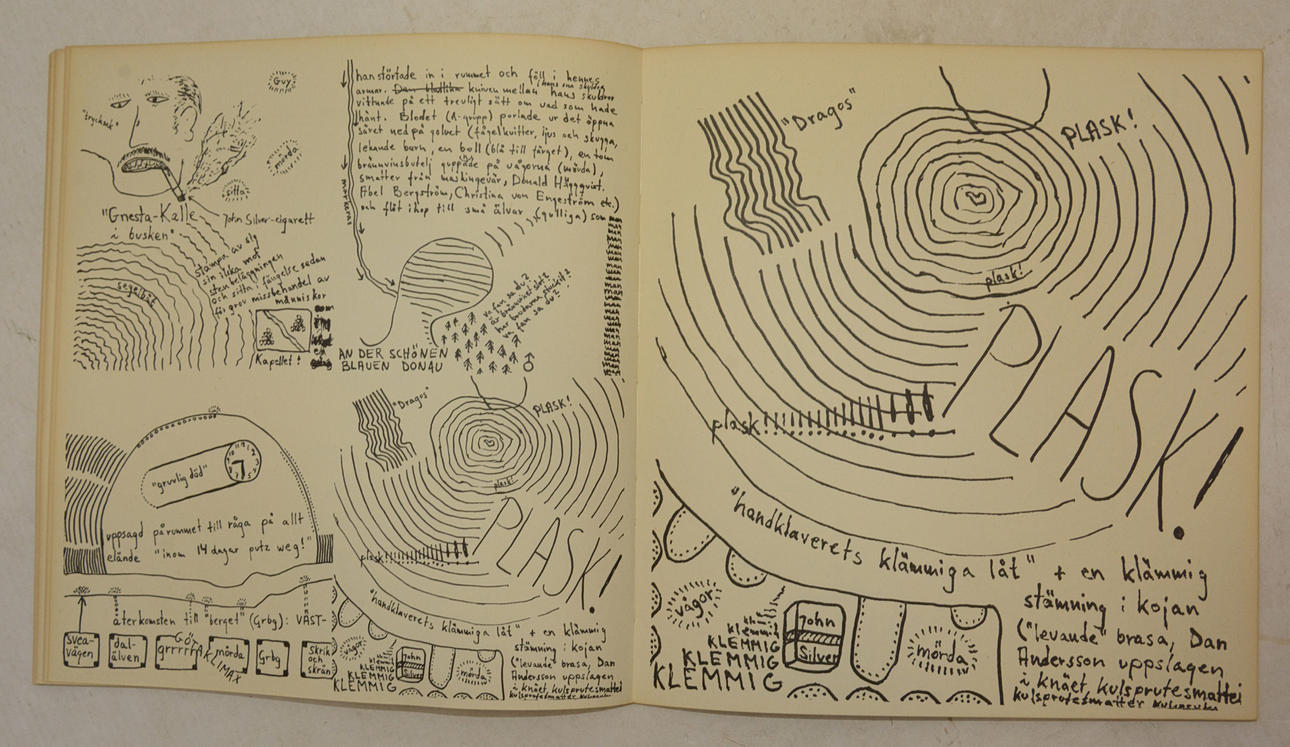 Guy
mörda
sitta
"Gnesta-Kalle
i busken"
John Silver-cigarett
stampa av sig
sin ilska mot
stenbeläggningen
och sitta i fängelse sedan
för grov misshandel av
människor
segelbåt
Kapellet!
han störtade in i rummet och föll i hennes
armar. Den blodiga kniven mellan hans skuldror
vittnade på ett trevligt sätt om vad som hade
hänt. Blodet (A-grupp) porlade ur det öppna
såret ned på golvet (fågelkvitter, ljus och skugga,
lekande barn, en boll (blå till färget), en tom
brännvinsbutelj guppade på vågorna (mörda),
smatter från maskingevär, Donald Häggqvist,
Abel Bergström, Christina von Engeström etc.)
och flöt ihop till små älvar (gulliga) som man
man
va fan sa du?
är brännvinet slut?
va fan sa
du?
AN DER SCHÖNEN
BLAUEN DONAU
"gruvlig död"
uppsagd på rummet till råga på allt
elände "inom 14 dagar putz weg!"
återkomsten till "berget" (Grbg): VÄST-
svea-
vägen
dal-
älven
GÖT
grrrrr
AKLIMAX
mörda
Grbg
Skrik
och
skrän
"Dragos"
PLASK!
plask!
PLASK!
plask!!!!!!!!!!!!!!!
"handklaverets klämmiga låt" + en klämmig
stämning i kojan
("levande" brasa, Dan
Andersson uppslagen
i knäet, kulsprutesmattei
kulsprutesmatter
vågor
klemmig
klemmig
KLEMMIG
KLEMMIG
KLEMMIG
John
Silver
mörda
"Dragos"
PLASK!
plask!
PLASK!
plask!!!!!!!!!!!!!!!
"handklaverets klämmiga låt" + en klämmig
stämning i kojan
("levande" brasa, Dan
Andersson uppslagen
i knäet, kulsprutesmattei
kulsprutesmatter
vågor
klemmig
klemmig
KLEMMIG
KLEMMIG
KLEMMIG
John
Silver
mörda